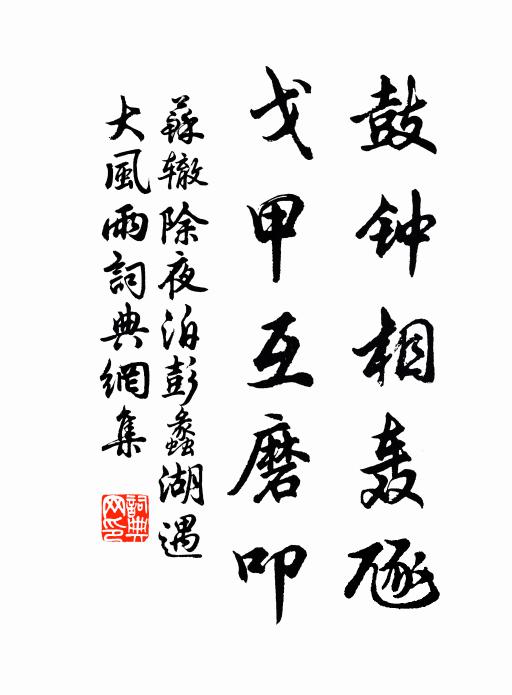 鼓钟相轰豗
戈甲互磨叩
蘇辙除夜泊彭蠡湖遇
大風雨詞典網集
詞典网印